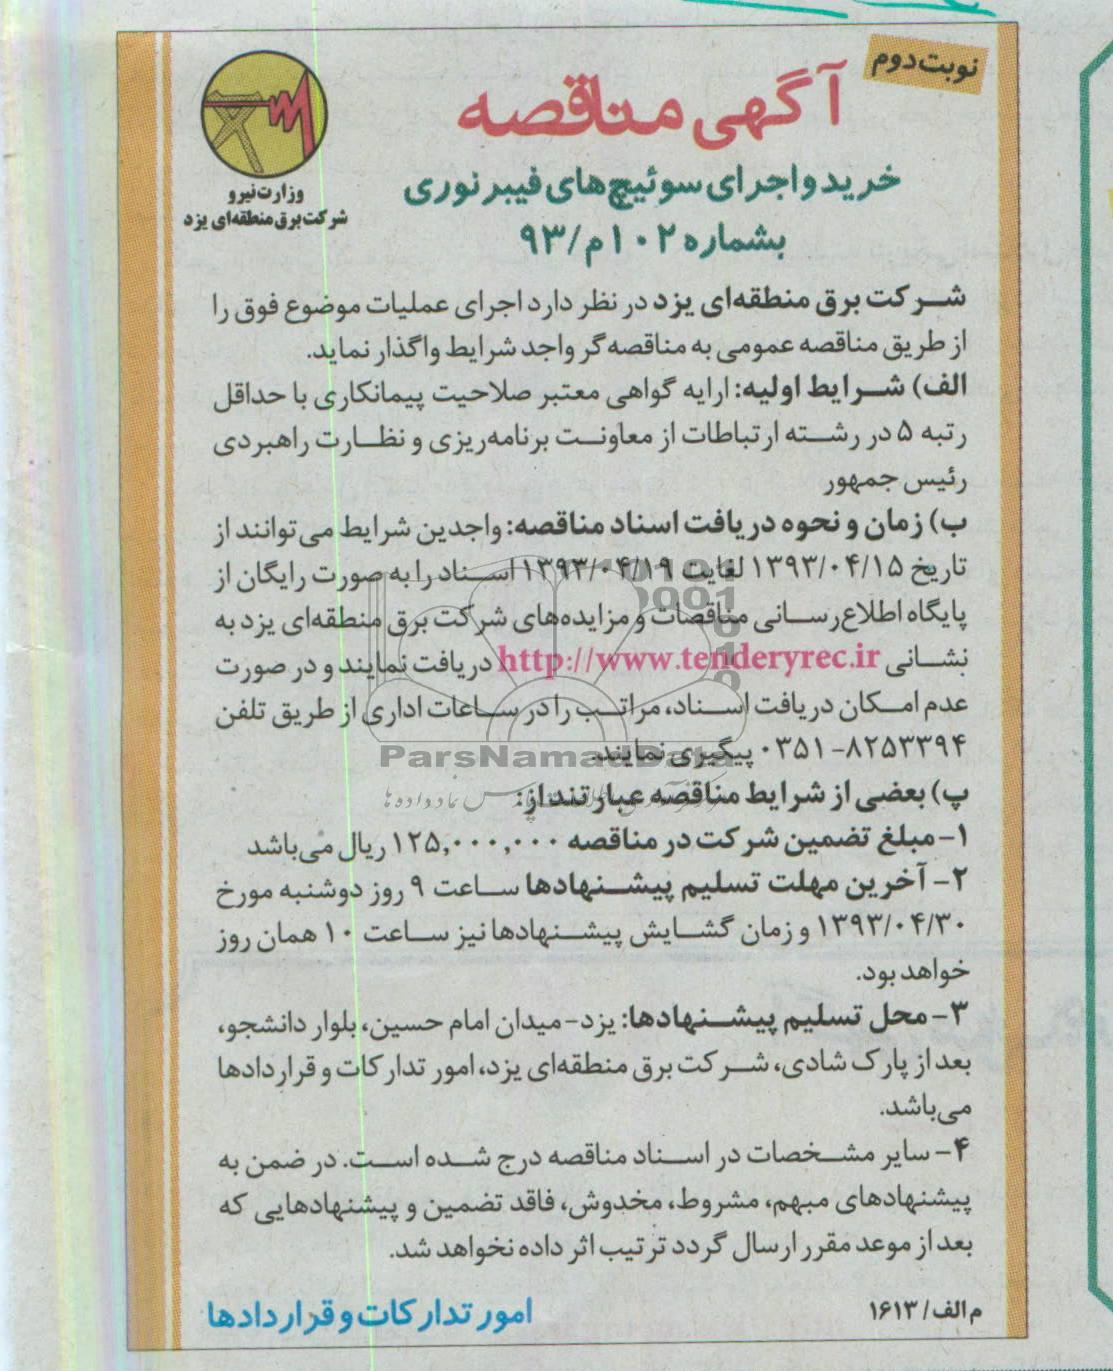 نوبت دوم
آگهی مناقصه
خرید و اجرای سوئیچ‌های فیبر نوری
بشماره ۱۰۲م/۹۳
وزارت نیرو
شرکت برق منطقه‌ای یزد
شرکت برق منطقه‌ای یزد در نظر دارد اجرای عملیات موضوع فوق را
از طریق مناقصه عمومی به مناقصه‌گر واجد شرایط واگذار نماید.
الف) شرایط اولیه: ارایه گواهی معتبر صلاحیت پیمانکاری با حداقل
رتبه ۵ در رشته ارتباطات از معاونت برنامه‌ریزی و نظارت راهبردی
رئیس جمهور
ب) زمان و نحوه دریافت اسناد مناقصه: واجدین شرایط می‌توانند از
تاریخ ۱۳۹۳/۰۴/۱۵ لغایت ۱۳۹۳/۰۴/۱۹ اسناد را به صورت رایگان از
پایگاه اطلاع‌رسانی مناقصات و مزایده‌های شرکت برق منطقه‌ای یزد به
نشانی http://www.tenderyrec.ir دریافت نمایند و در صورت
عدم امکان دریافت اسناد، مراتب را در ساعات اداری از طریق تلفن
۰۳۵۱-۸۲۵۳۳۹۴ پیگیری نمایند.
ParsNamadData
پ) بعضی از شرایط مناقصه عبارتند از:
۱- مبلغ تضمین شرکت در مناقصه ۱۲۵,۰۰۰,۰۰۰ ریال می‌باشد
۲- آخرین مهلت تسلیم پیشنهادها ساعت ۹ روز دوشنبه مورخ
۱۳۹۳/۰۴/۳۰ و زمان گشایش پیشنهادها نیز ساعت ۱۰ همان روز
خواهد بود.
۳- محل تسلیم پیشنهادها: یزد- میدان امام حسین، بلوار دانشجو،
بعد از پارک شادی، شرکت برق منطقه‌ای یزد، امور تدارکات و قراردادها
می‌باشد.
۴- سایر مشخصات در اسناد مناقصه درج شده است. در ضمن به
پیشنهادهای مبهم، مشروط، مخدوش، فاقد تضمین و پیشنهادهایی که
بعد از موعد مقرر ارسال گردد ترتیب اثر داده نخواهد شد.
م الف/ ۱۶۱۳
امور تدارکات و قراردادها